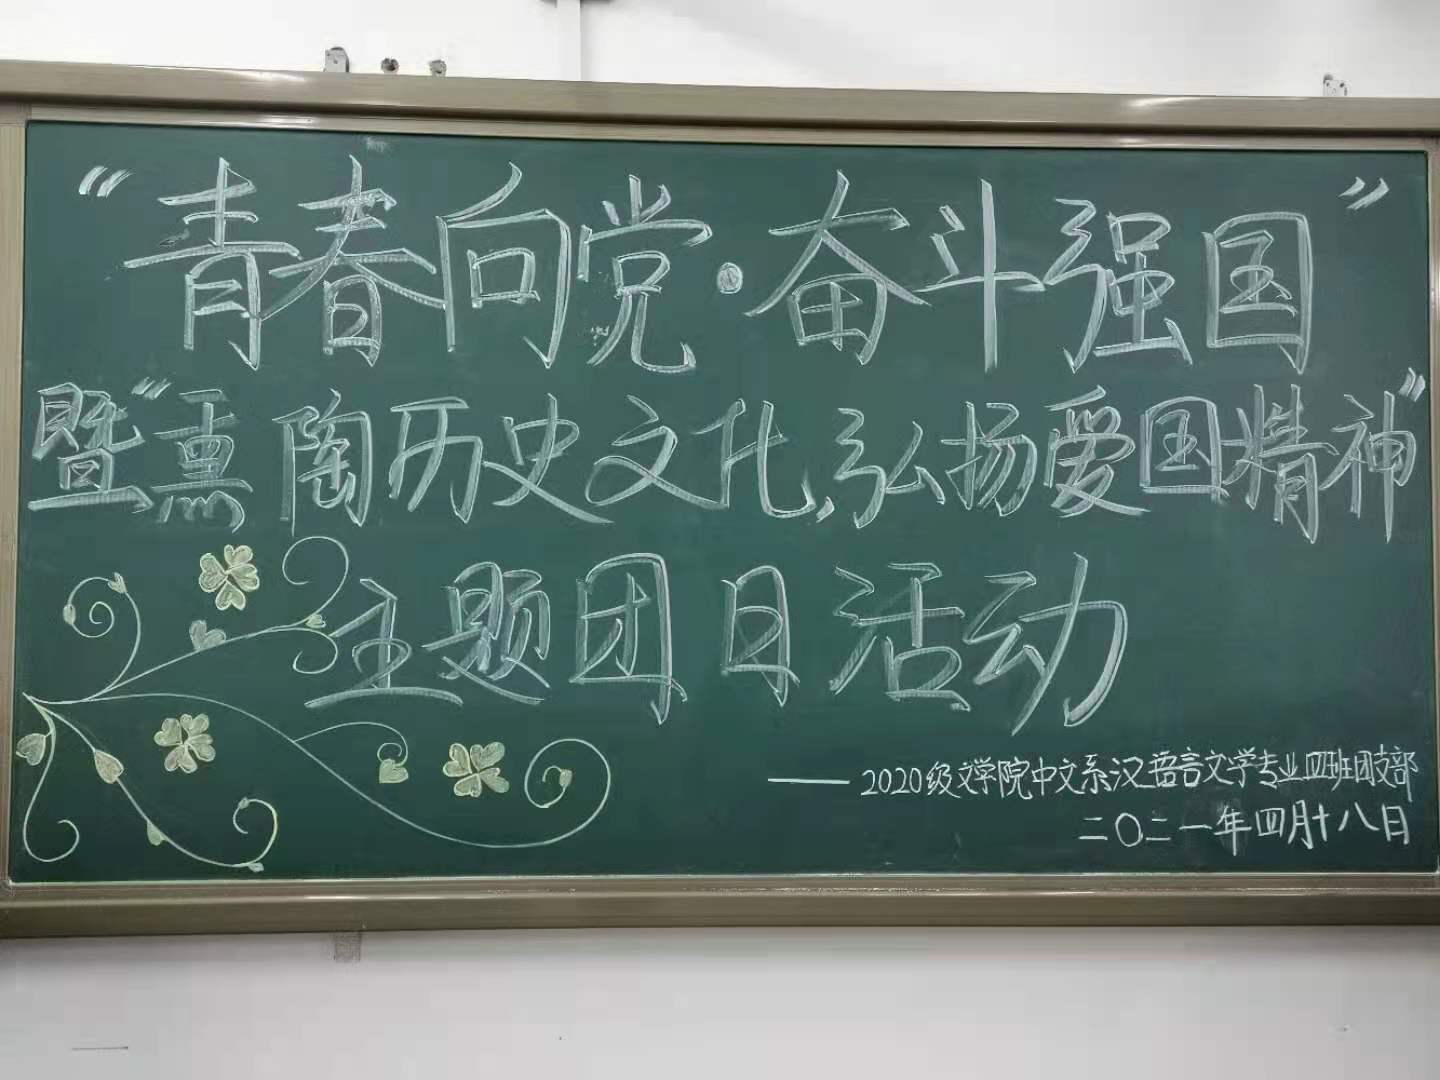 “青春向党·奋斗强国”
暨“熏陶历史文化,弘扬爱国精神”
主题团日活动
——2020级文学院中文系汉语言文学专业四班团支部
二〇二一年四月十八日